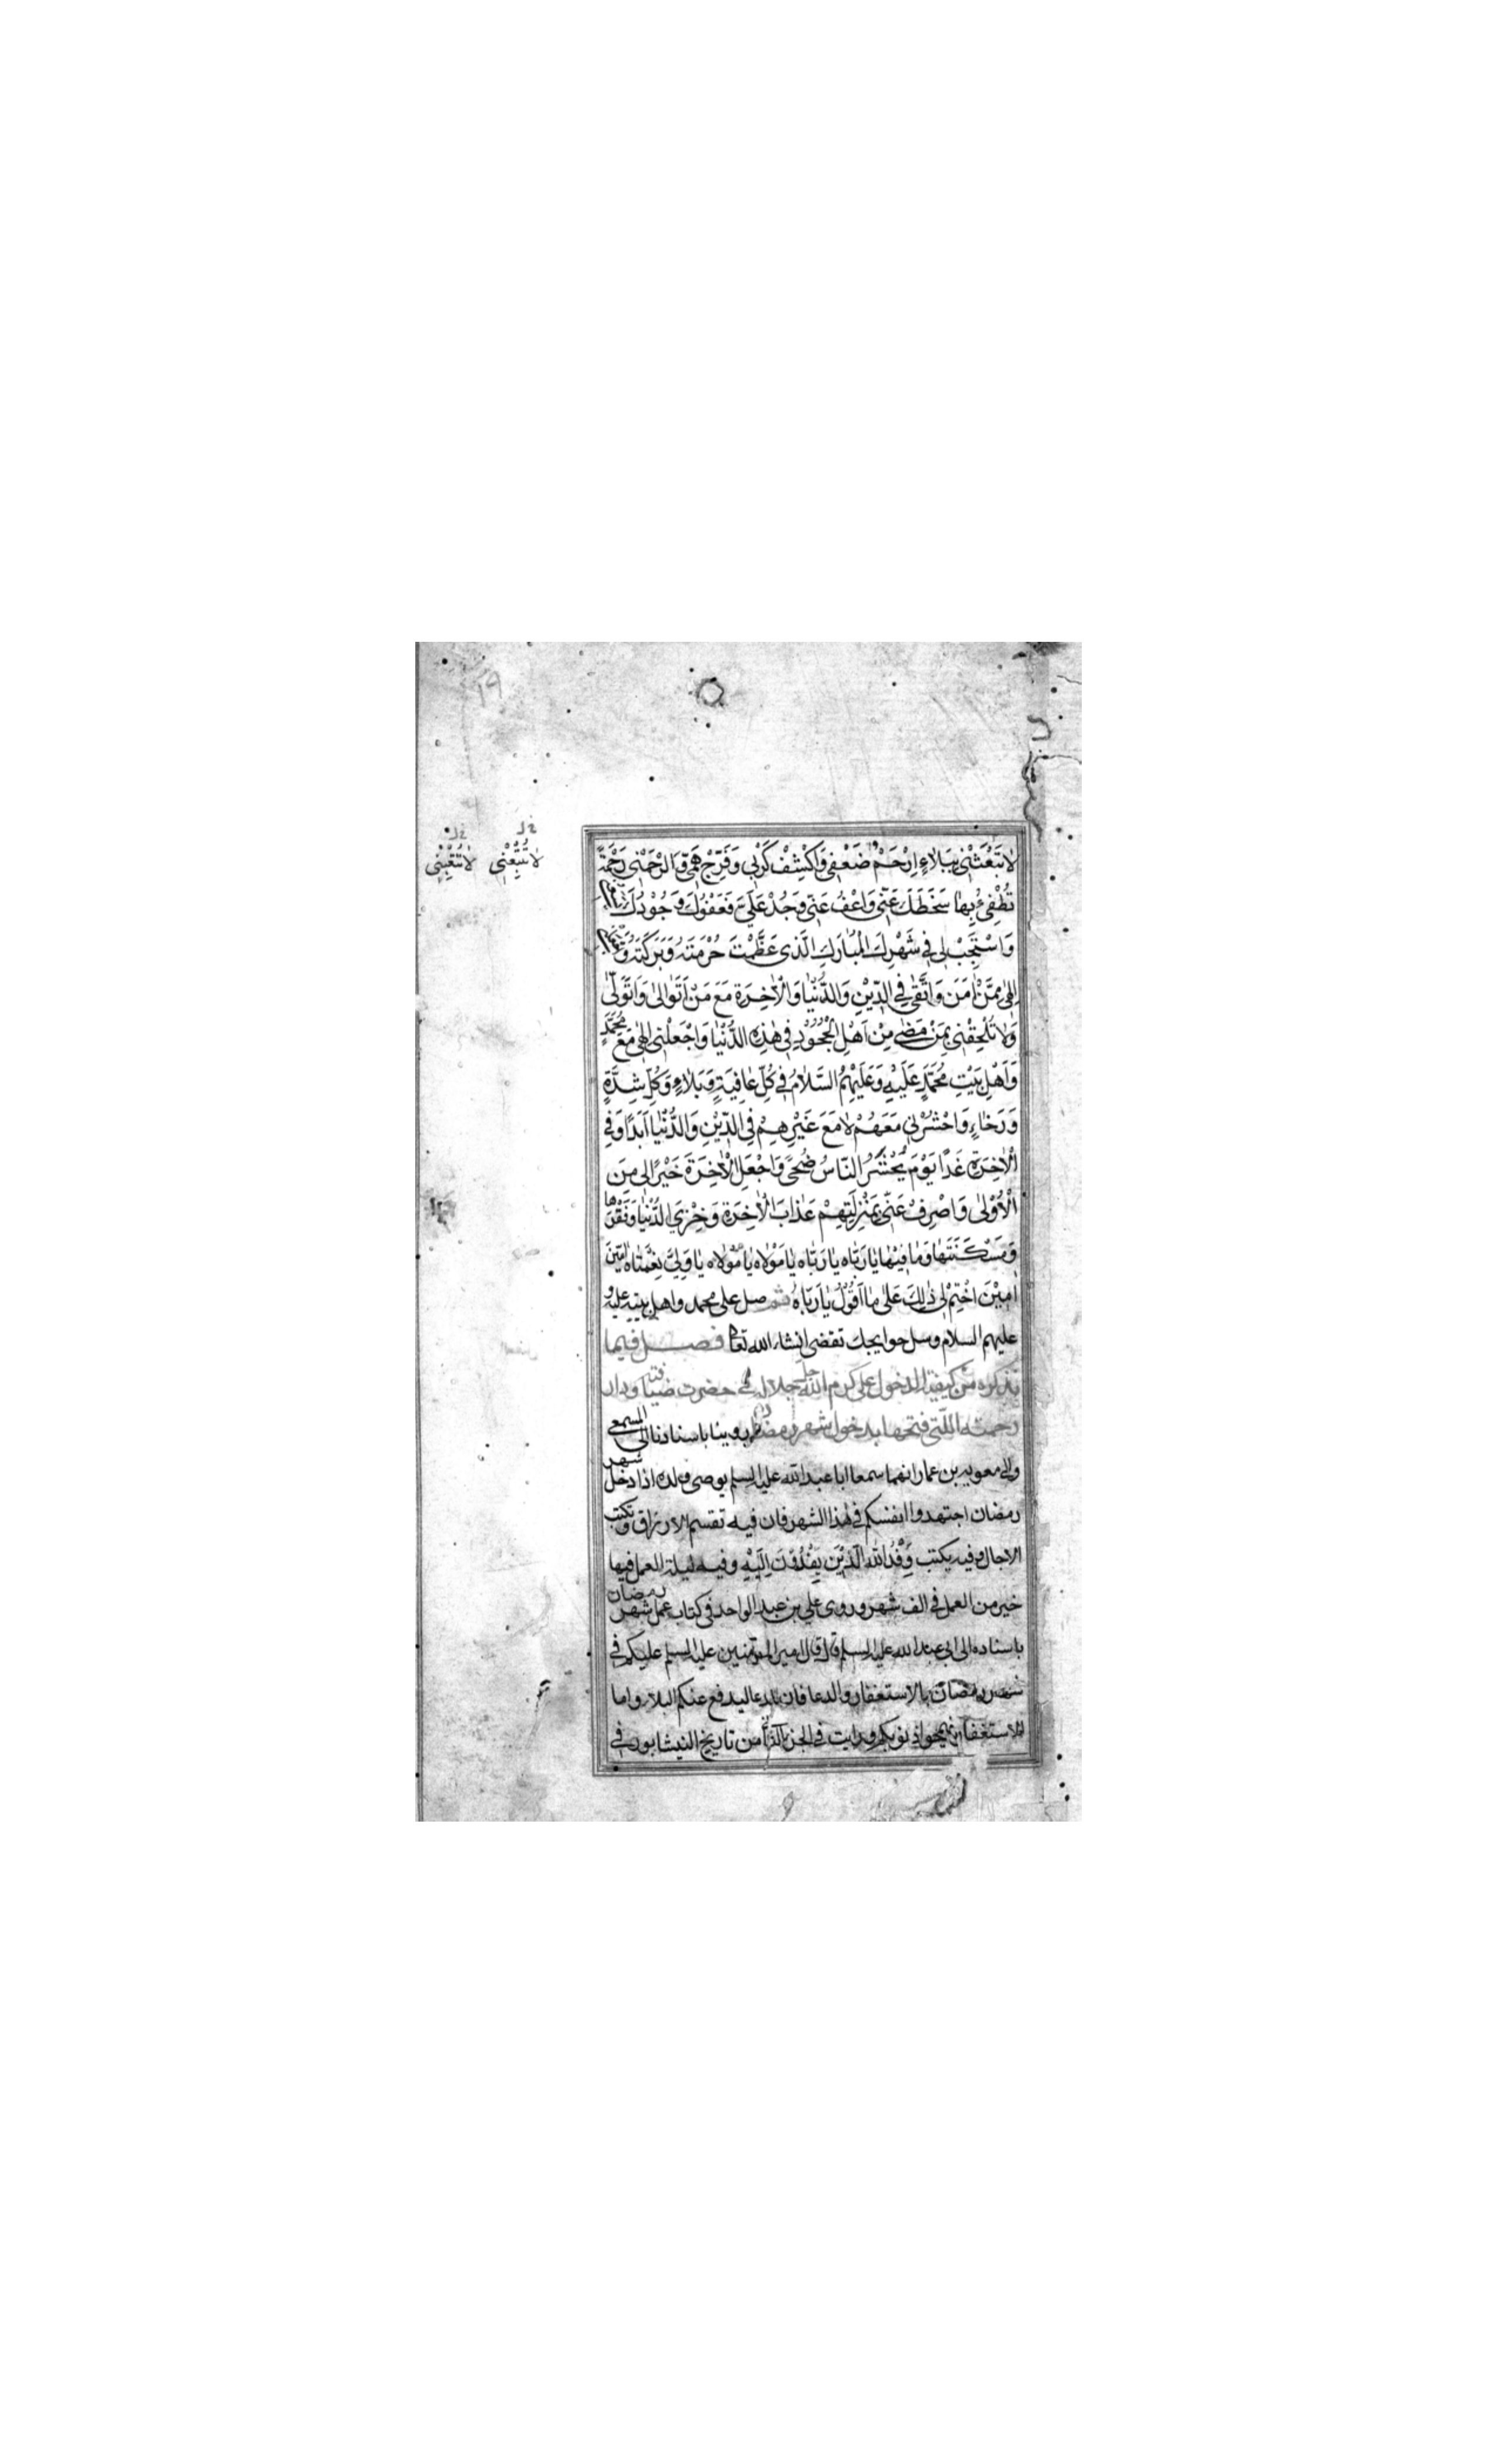 ١٩
لا تُتَبِّعْنِي خ ل
لا تُتْعِبْنِي خ ل
لا تَبْعَثْنِي بِبَلاءٍ اِرْحَمْ ضَعْفِي وَاكْشِفْ كَرْبِي وَفَرِّجْ هَمِّي وَارْحَمْنِي رَحْمَةً
تُطْفِئُ بِهَا سَخَطَكَ عَنِّي وَاعْفُ عَنِّي وَجُدْ عَلَيَّ فَعَفْوُكَ وَجُودُكَ
وَاسْتَجِبْ لِي فِي شَهْرِكَ الْمُبَارَكِ الَّذِي عَظَّمْتَ حُرْمَتَهُ وَبَرَكَتَهُ
اِلٰهِي مِمَّنْ اٰمَنَ وَاتَّقٰى فِي الدِّيْنِ وَالدُّنْيَا وَالْاٰخِرَةِ مَعَ مَنْ اَتَوَالٰى وَاَتَوَلّٰى
وَلا تُلْحِقْنِي بِمَنْ مَضٰى مِنْ اَهْلِ الْجُحُوْدِ فِي هٰذِهِ الدُّنْيَا وَاجْعَلْنِي اِلٰهِي مَعَ مُحَمَّدٍ
وَاَهْلِ بَيْتِ مُحَمَّدٍ عَلَيْهِ وَعَلَيْهِمُ السَّلامُ فِي كُلِّ عَافِيَةٍ وَبَلاءٍ وَكُلِّ شِدَّةٍ
وَرَخَاءٍ وَاحْشُرْنِي مَعَهُمْ لا مَعَ غَيْرِهِمْ فِي الدِّيْنِ وَالدُّنْيَا اَبَدًا وَفِي
الْاٰخِرَةِ غَدًا يَوْمَ يُحْشَرُ النَّاسُ ضُحًى وَاجْعَلِ الْاٰخِرَةَ خَيْرًا لِي مِنَ
الْاُوْلٰى وَاصْرِفْ عَنِّي بِمَنْزِلَتِهِمْ عَذَابَ الْاٰخِرَةِ وَخِزْيَ الدُّنْيَا وَفَقْرَهَا
وَمَسْكَنَتَهَا وَمَا فِيْهَا يَا رَبَّاه يَا رَبَّاه يَا مَوْلاه يَا مَوْلاه يَا وَلِيَّ نِعْمَتَاه اٰمِيْنَ
اٰمِيْنَ اخْتِمْ لِي ذٰلِكَ عَلٰى مَا اَقُوْلُ يَا رَبَّاهُ ثم صل على محمد واهل بيته عليه و
عليهم السلام وسل حوايجك تقضى انشاء الله تعالى فصل فيما
نذكره من كيفية الدخول على كرم الله جل جلاله في حضرت ضيافته ودار
رحمته اللتى فتحها بدخول شهر رمضان روينا باسنادنا الى المسمعي
والى معوية بن عمار انهما سمعا ابا عبد الله عليه السلم يوصى ولده اذا دخل شهر
رمضان اجتهدوا انفسكم في هذا الشهر فان فيه تقسم الارزاق وتكتب
الاجال وفيه يكتب وَفْدُ اللهِ الَّذِيْنَ يَفِدُوْنَ اِلَيْهِ وفيه ليلة العمل فيها
خير من العمل في الف شهر وروى علي بن عبد الواحد في كتاب عمل شهر رمضان
باسناده الى ابى عبد الله عليه السلم قال قال امير المؤمنين عليه السلم عليكم في
شهر رمضان بالاستغفار والدعا فان الدعا ليدفع عنكم البلاء واما
الاستغفار فيمحوا ذنوبكم ورايت في الجزء من تاريخ النيشابورى في